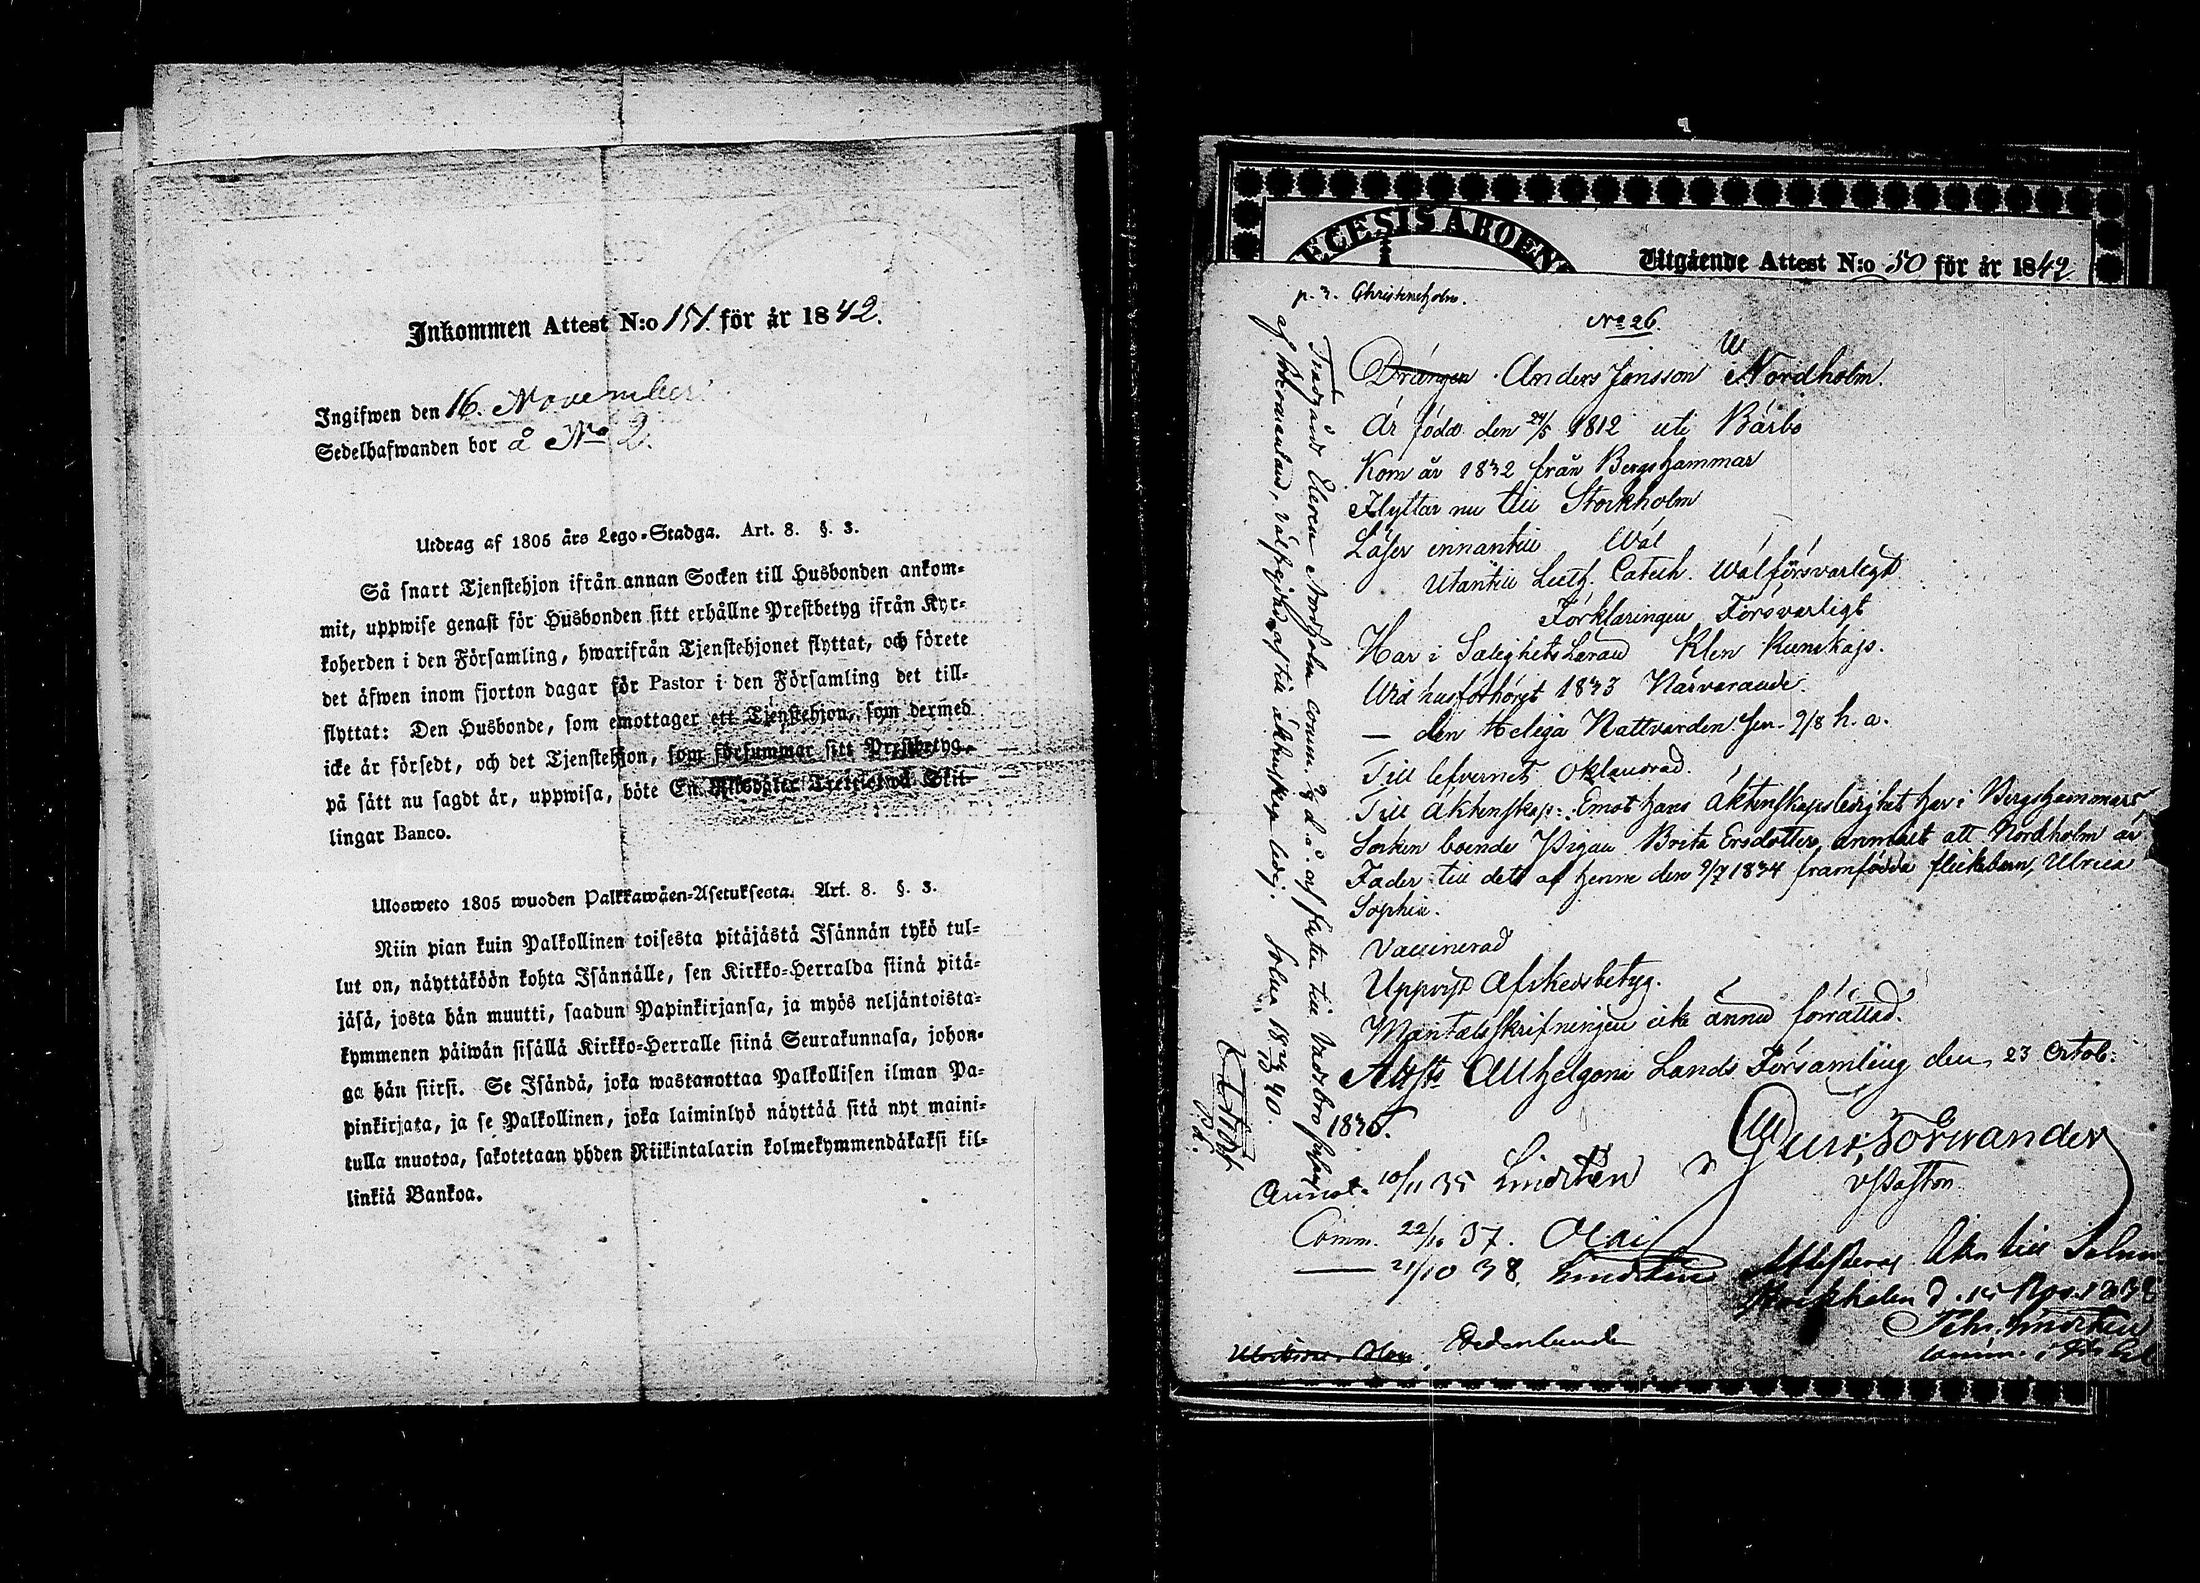 Inkommen Attest N:o 151. för år 1842.
Ingifwen den 16. November.
Sedelhafwanden bor å No 2.
Utdrag af 1805 års Lego-Stadga. Art. 8. §. 3.
Så snart Tjenstehjon ifrån annan Socken till Husbonden ankom-
mit, uppwise genast för Husbonden sitt erhållne Prestbetyg ifrån Kyr-
koherden i den Församling, hwarifrån Tjenstehjonet flyttat, och förete
det äfwen inom fjorton dagar för Pastor i den Församling det till-
flyttat: Den Husbonde, som emottager ett Tjenstehjon, som dermed
icke är försedt, och det Tjenstehjon, som försummar sitt Prestbetyg,
på sätt nu sagdt är, uppwisa, böte En Riksdaler Trettiotwå Skil-
lingar Banco.
Ulosweto 1805 wuoden Palkkawäen-Asetuksesta. Art. 8. §. 3.
Niin pian kuin Palkollinen toisesta pitäjästä Isännän tykö tul-
lut on, näyttäköön kohta Isännälle, sen Kirkko-Herralda siinä pitä-
jäsä, josta hän muutti, saadun Papinkirjansa, ja myös neljäntoista-
kymmenen päiwän sisällä Kirkko-Herralle siinä Seurakunnasa, johon-
ga hän siirsi. Se Isändä, joka wastanottaa Palkollisen ilman Pa-
pinkirjata, ja se Palkollinen, joka laiminlyö näyttää sitä nyt maini-
tulla muotoa, sakotetaan yhden Riikintalarin kolmekymmendäkaksi kil-
linkiä Bankoa.
ECESIS ABOENS
Utgående Attest N:o 50 för år 1842
p. 3. Christineholm.
No 26.
Drängen Anders Jonsson Nordholm.
Är född den 24/5 1812 uti Bärbo
Kom år 1832 från Bergshammar
Flyttar nu till Stockholm
Läser innantill Wäl
Utantill Luth. Catech. Wäl försvarligt
Förklaringen Försvarligt
Har i Salighets Läran Klen Kunskap.
Wid husförhöret 1833 Närvarande.
— den Heliga Nattvarden sen. 9/8 h. a.
Till lefvernet Oklandrad.
Till Äktenskap: Emot hans äktenskapsledighet har i Bergshammars
Socken boende Pigan Brita Ersdotter anmält att Nordholm är
Fader till dett af henne den 9/7 1834 framfödda flickebarn, Ulrica
Sophia.
Vaccinerad
Uppvist Afskedsbetyg.
Mantalsskrifningen icke ännu förrättad.
Attest. Allhelgona Lands Församling den 23 Octob:
1835.
v Pastor.
Annot. 10/11 35 Lindsten
Comm. 22/10 37.
— 21/10 38. Lindsten
Södra 18 40.